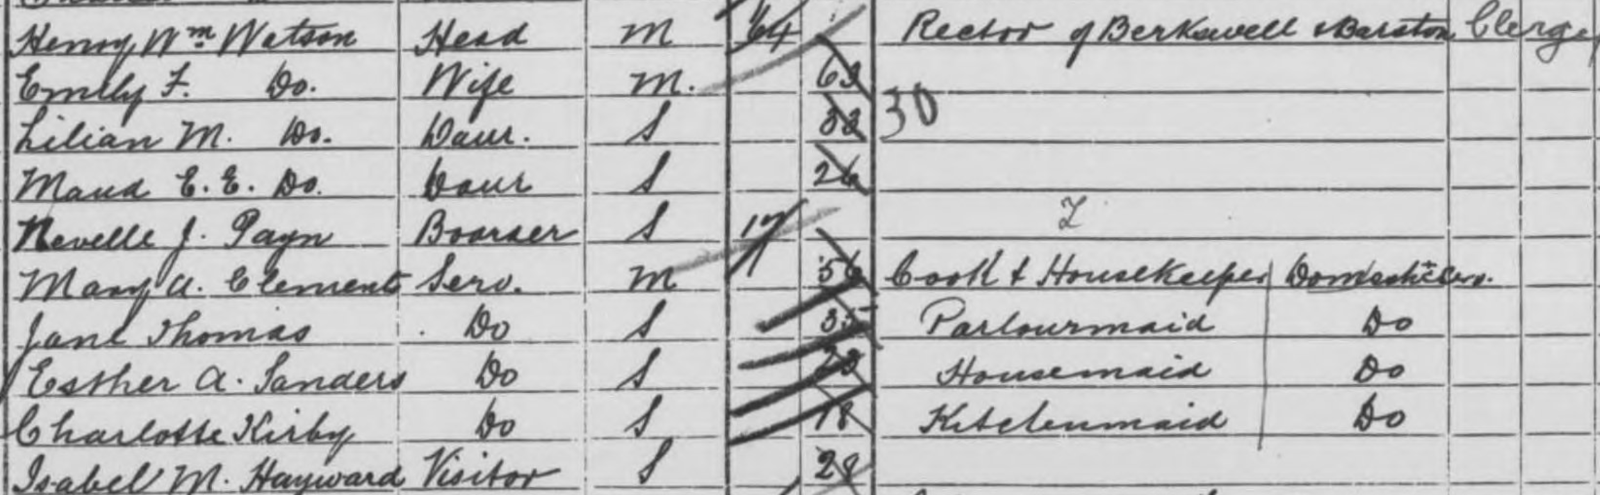 Henry Wm Watson Head M 64 Rector of Berkswell & Barston Clergy
Emily F. Do. Wife M. 63
Lilian M. Do. Daur. S 30
Maud E. E. Do. Daur S 26
Nevelle J. Payn Boarder S 17
Mary A. Clements Serv. M 56 Cook & Housekeeper Domestic Serv.
Jane Thomas Do S Parlourmaid Do
Esther A. Sanders Do S 23 Housemaid Do
Charlotte Kirby Do S 18 Kitchenmaid Do
Isabel M. Hayward Visitor S 28